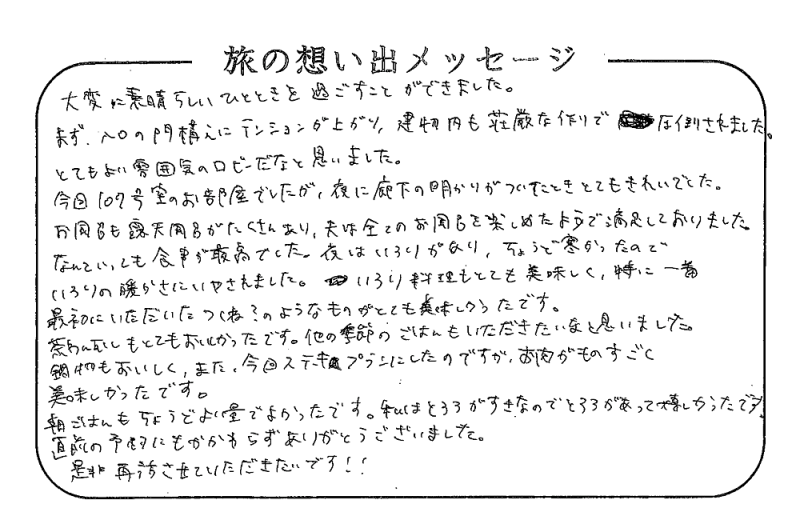 旅の想い出メッセージ
大変に素晴らしいひとときを過ごすことができました。
まず、入口の門構えにテンションが上がり、建物内も荘厳な作りで圧倒されました。
とてもよい雰囲気のロビーだなと思いました。
今回107号室のお部屋でしたが、夜に廊下の明かりがついたときとてもきれいでした。
お風呂も露天風呂がたくさんあり、夫は全てのお風呂を楽しめたようで満足しておりました。
なんていっても食事が最高でした。夜はいろりがあり、ちょうど寒かったので
いろりの暖かさにいやされました。いろり料理もとても美味しく、特に一番
最初にいただいたつくね?のようなものがとても美味しかったです。
茶わんむしもとてもおいしかったです。他の季節のごはんもいただきたいなと思いました。
鍋物もおいしく、また、今回ステーキプランにしたのですが、お肉がものすごく
美味しかったです。
朝ごはんもちょうどよい量でよかったです。私はとろろがすきなのでとろろがあって嬉しかったです。
直前の予約にもかかわらずありがとうございました。
是非再訪させていただきたいです!!